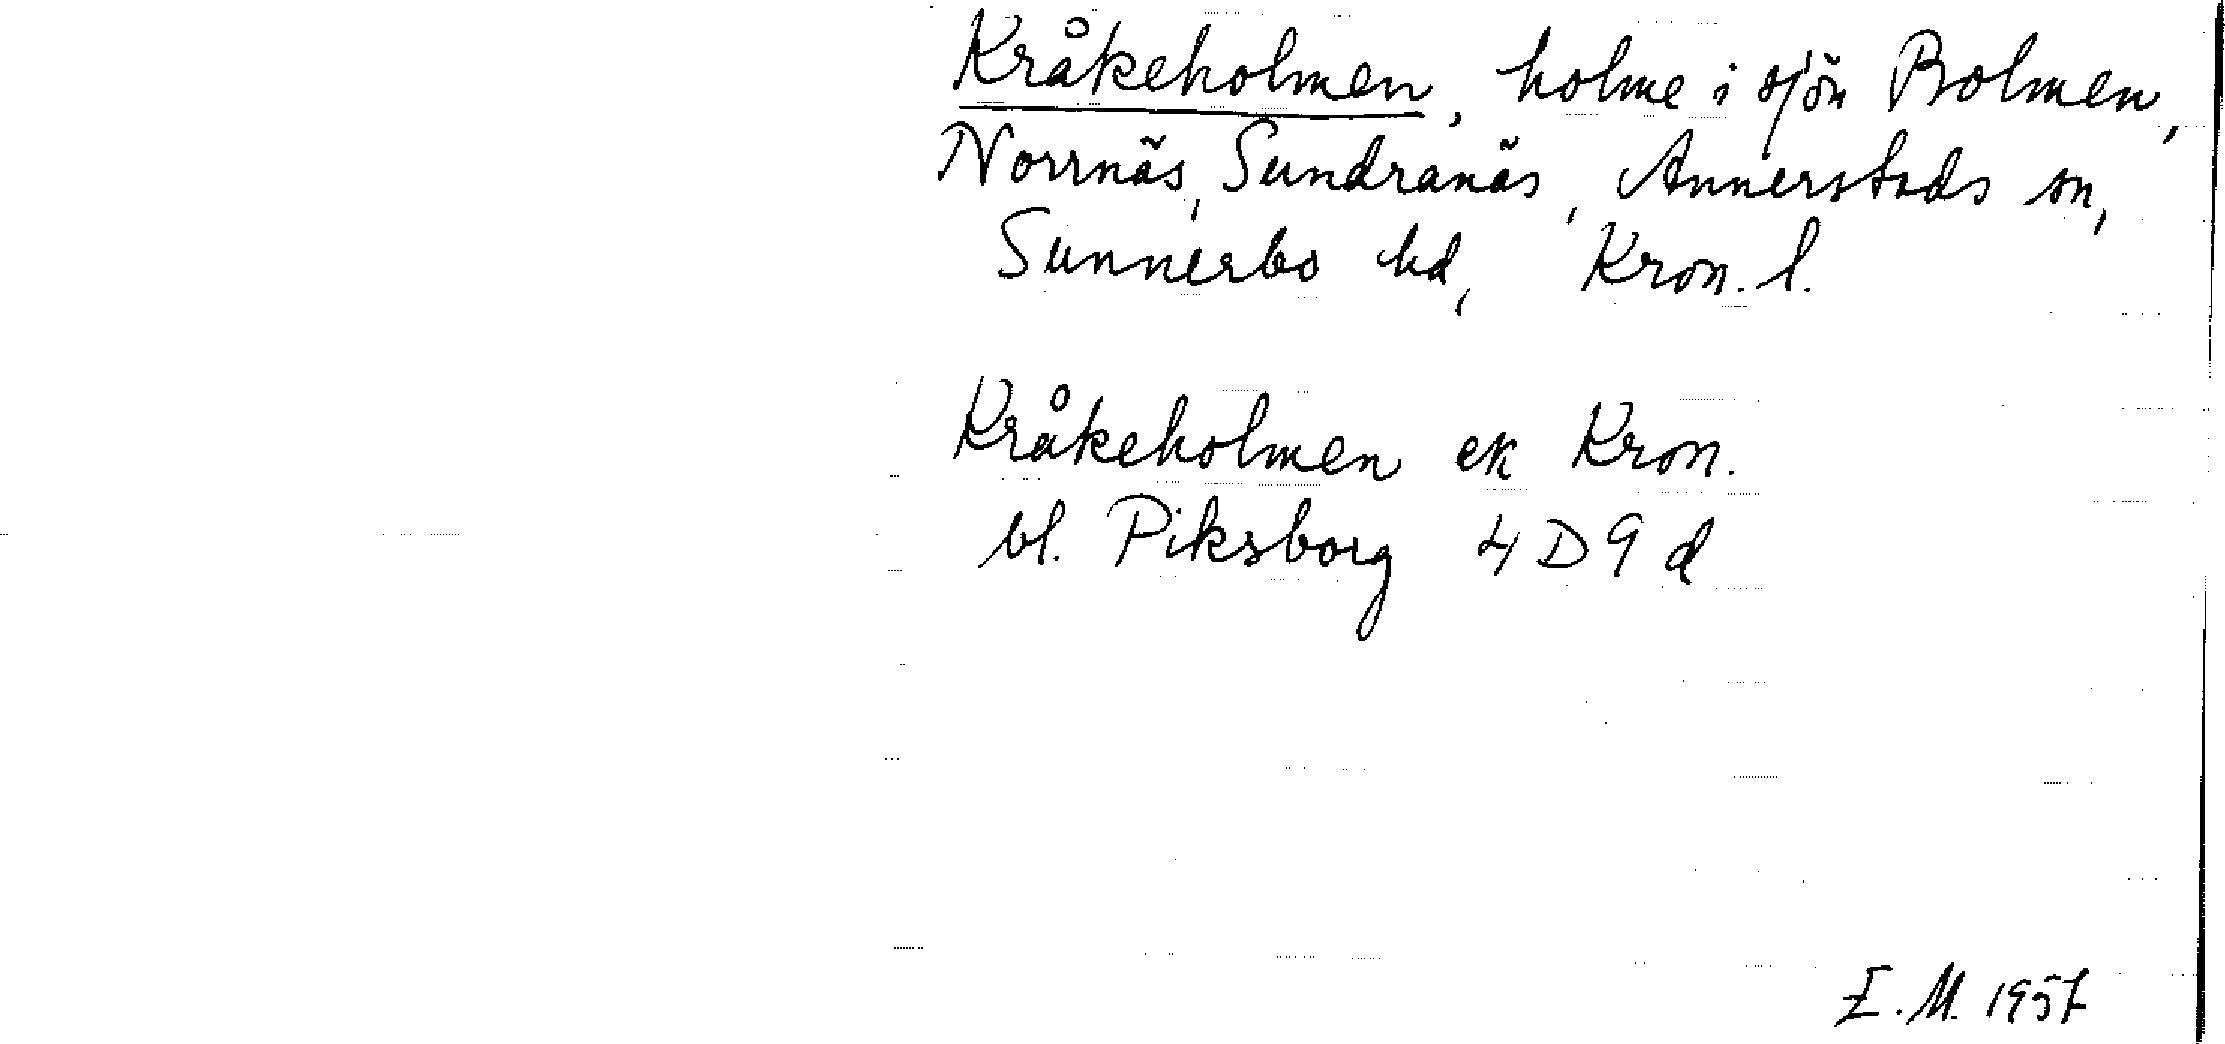 Kråkeholmen, holme i sjön Bolmen,
Norrnäs, Sundranäs, Annerstads sn,
Sunnerbo hd, Kron. l.
Kråkeholmen ek Kron.
bl. Piksborg 4D9d
E.M. 1957